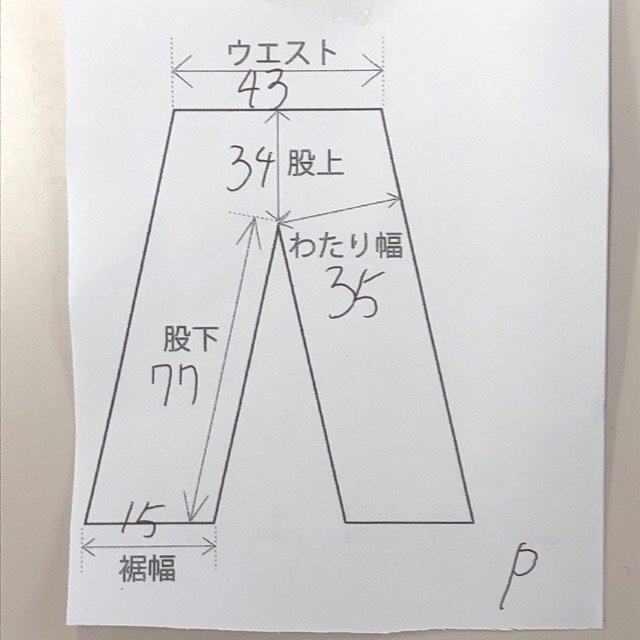 ウエスト
43
34 股上
わたり幅
35
股下
77
15
裾幅
p